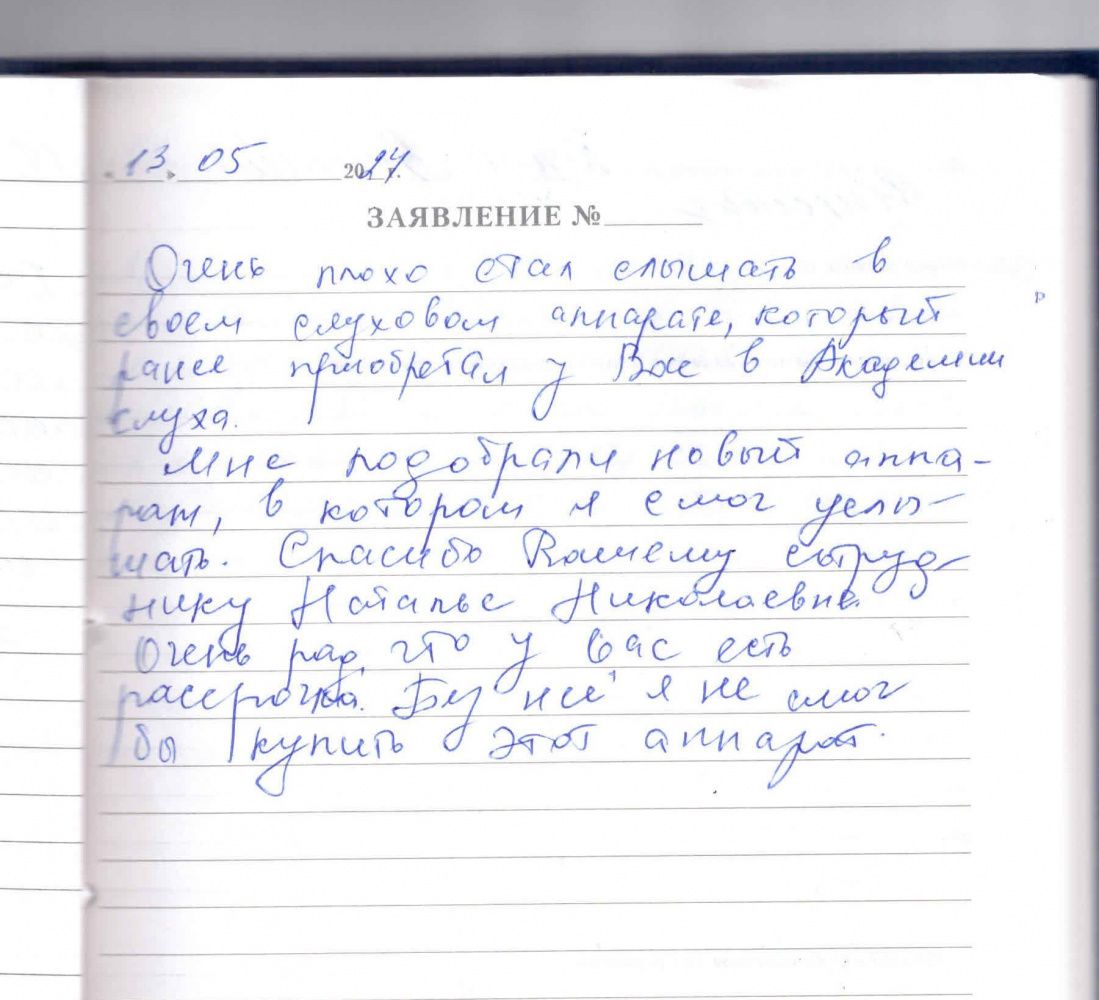 «13» 05 2024г.
ЗАЯВЛЕНИЕ №
Очень плохо стал слышать в
своем слуховом аппарате, который
ранее приобретал у Вас в Академии
слуха.
Мне подобрали новый аппа-
рат, в котором я смог услы-
шать. Спасибо Вашему сотруд-
нику Наталье Николаевне.
Очень рад, что у вас есть
рассрочка. Без неё я не смог
бы купить этот аппарат.